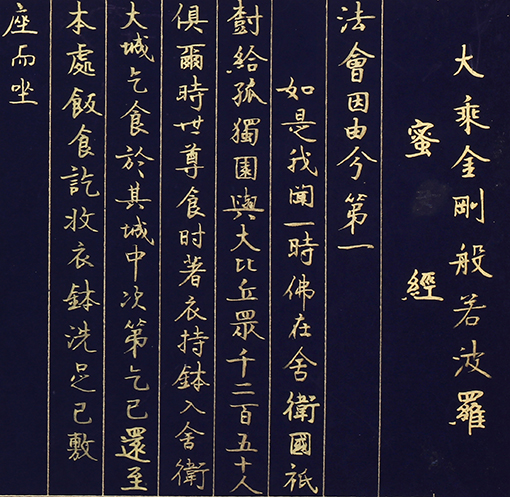 大乘金剛般若波羅
蜜經
法會因由兮第一
如是我聞一時佛在舍衛國祇
尌給孤獨園與大比丘眾千二百五十人
俱爾時世尊食时著衣持鉢入舍衛
大城乞食於其城中次第乞已還至
本處飯食訖收衣鉢洗足已敷
座而坐